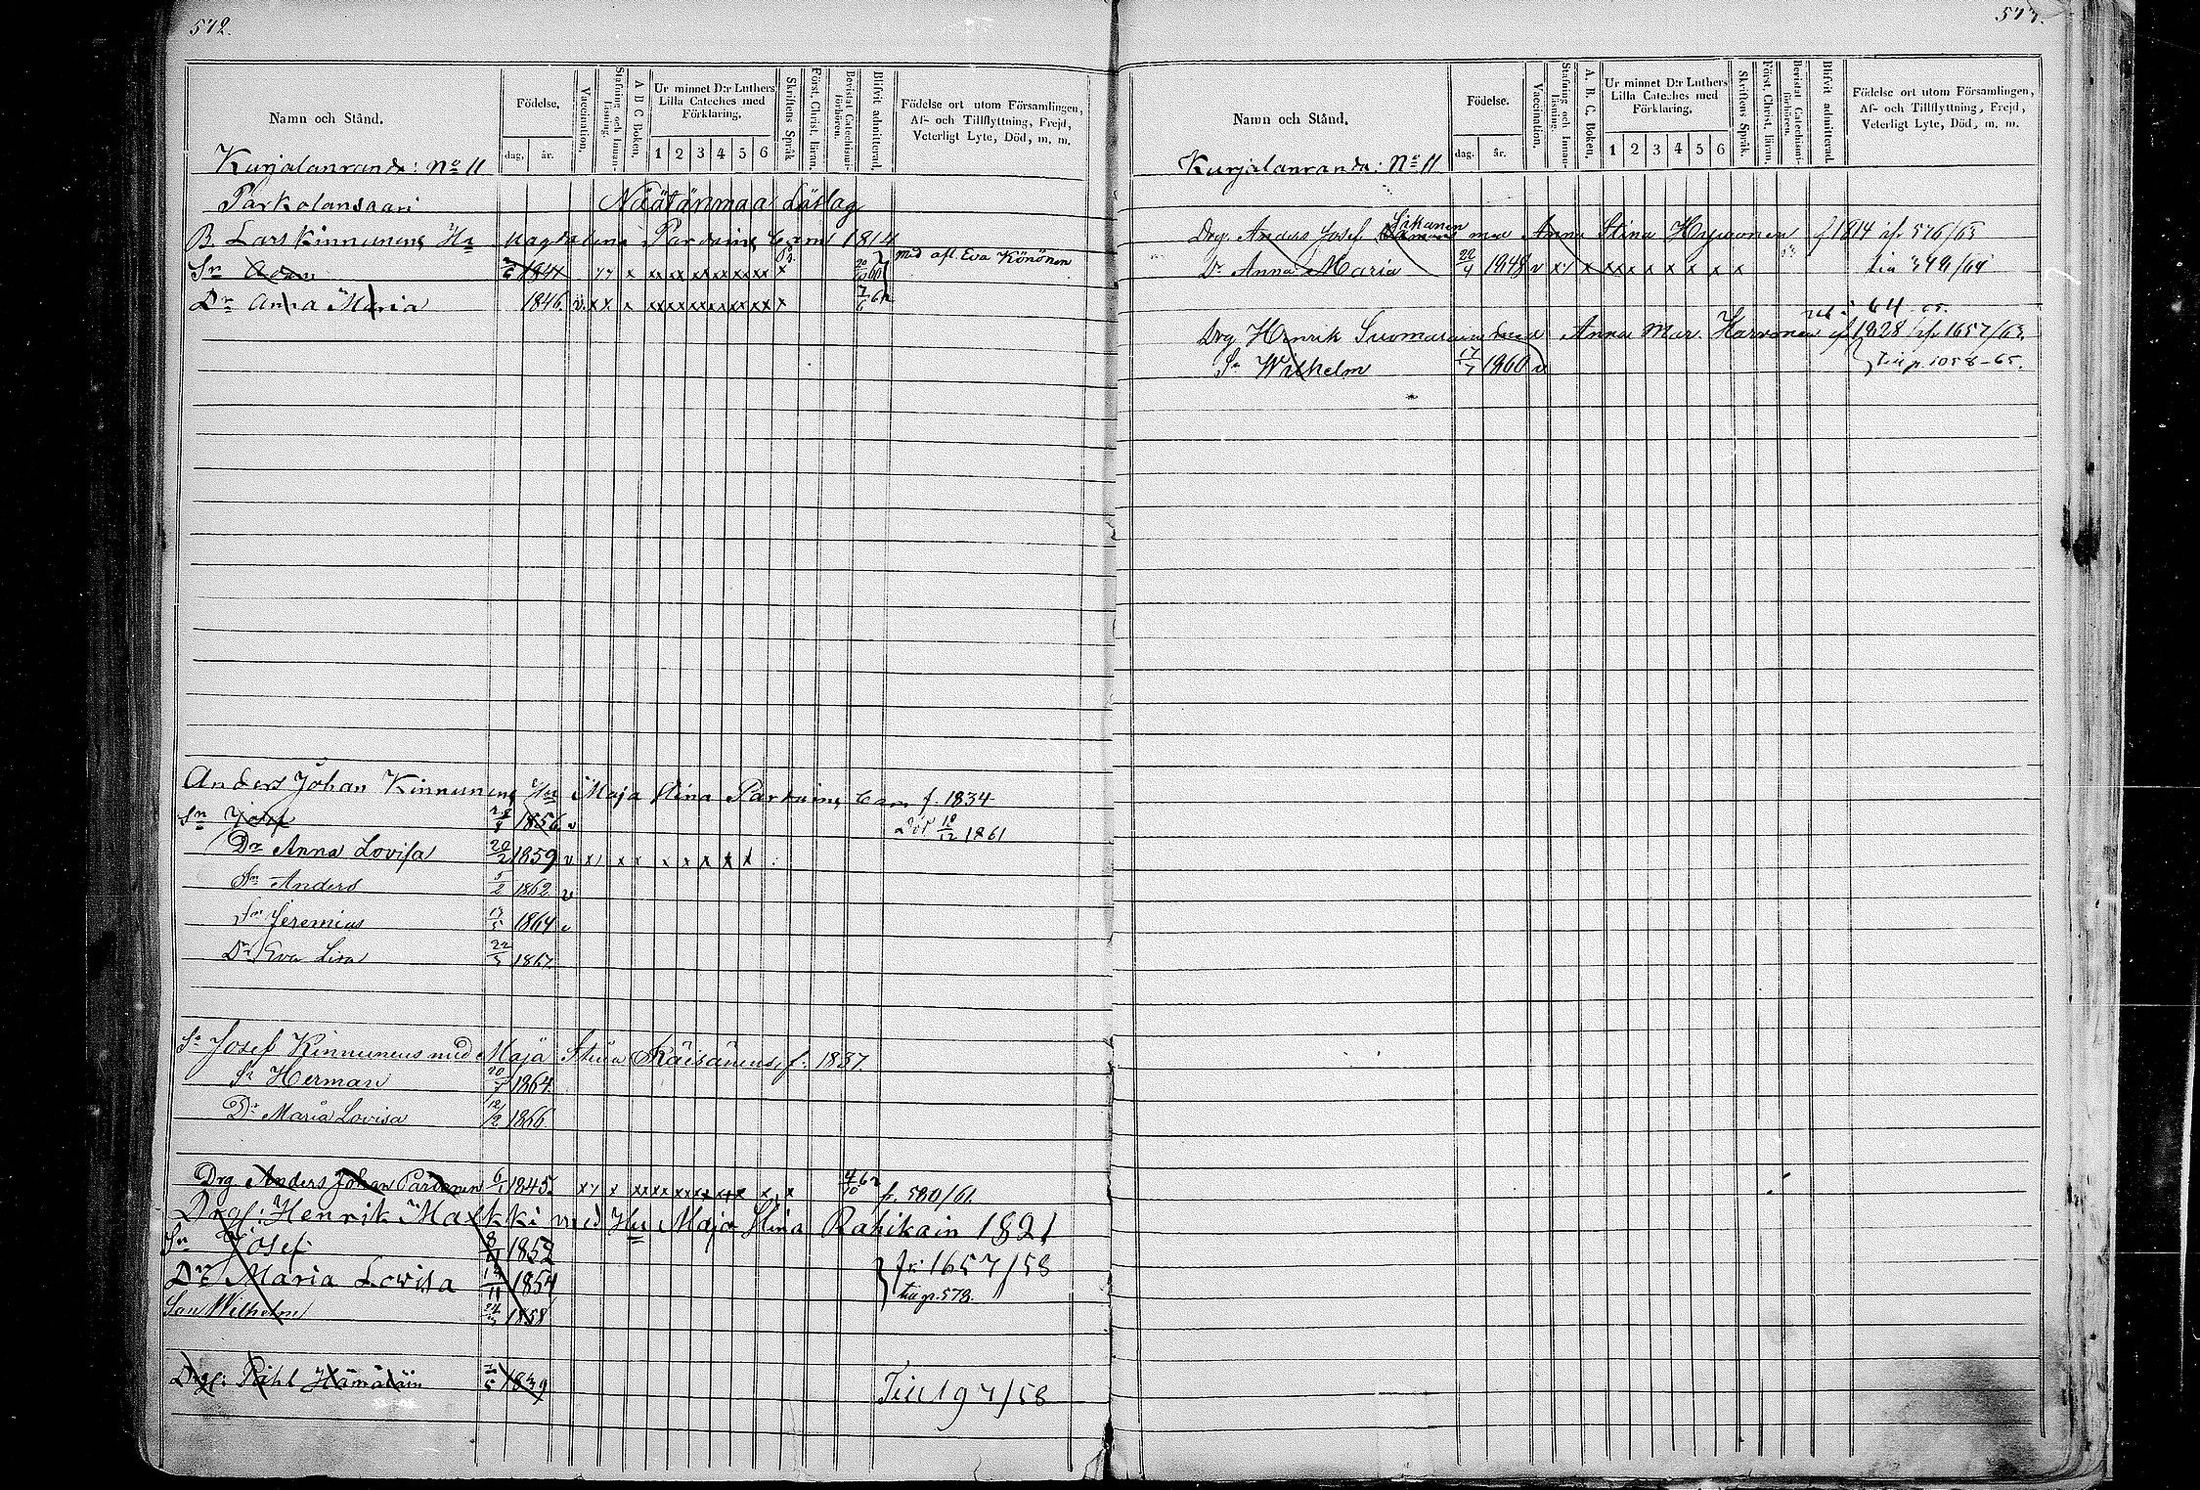 572.
Namn och Stånd.
Födelse,
dag, år.
Vaccination,
Stafning och Innanläsning.
A B C Boken,
Ur minnet D:r Luthers Lilla Cateches med Förklaring,
1 2 3 4 5 6
Skriftens Språk
Först, Christ. läran.
Bevistat Catechismiförhören.
Blifvit admitterad,
Födelse ort utom Församlingen,
Af- och Tillflyttning, Frejd,
Veterligt Lyte, Död, m. m.
Kurjalanranda: No 11
Parkolansaari Näätänmaa Läslag
B. Lars Kinnunens Hu Magdalena Pardains barn 1814
Sn Adam 1844 med afl. Eva Könönen
Dr Anna Maria 1846. v.
Anders Johan Kinnunens Hu Maja Stina Pardains barn f. 1834
Sn Josef 1856. v Död 18/12 1861
Dr Anna Lovisa 20/2 1859 v
Sn Anders 5/2 1862 v
Sn Jeremias 13/5 1864 v
Dr Eva Lisa 22/3 1867.
Sn Josef Kinnunens med Maja Stina Räisänens, f. 1837
Sn Herman 1864.
Dr Maria Lovisa 12/2 1866.
Drg Anders Johan Pardanen 1845. 4/10 62 fr. 580/61
Drgl: Henrik Malkki med Hu Maja Stina Rahikain 1821
Sn Josef 1852
Dr Maria Lovisa 1854 fr: 1657/58
Son Wilhelm 24/3 1858 till p. 573.
Drgl: Påhl Hämäläin 1839 Till 197/58
573.
Namn och Stånd.
Födelse.
dag. år.
Vaccination.
Stafning och Innanläsning.
A. B. C. Boken,
Ur minnet D:r Luthers Lilla Cateches med Förklaring.
1 2 3 4 5 6
Skriftens Språk.
Först, Christ. läran,
Bevistat Catechismiförhören.
Blifvit admitterad.
Födelse ort utom Församlingen,
Af- och Tillflyttning, Frejd,
Veterligt Lyte, Död, m. m.
Kurjalanranda: No 11
Drg. Anders Josef med Anna Stina Hyvönen f 1814 afr 576/63
Dr Anna Maria 1848 v till 349/64
Drg Henrik Anna Mar. f 1828 fr 1657/63.
Sn Wilhelm 17/7 1860 v till p. 1058-65.